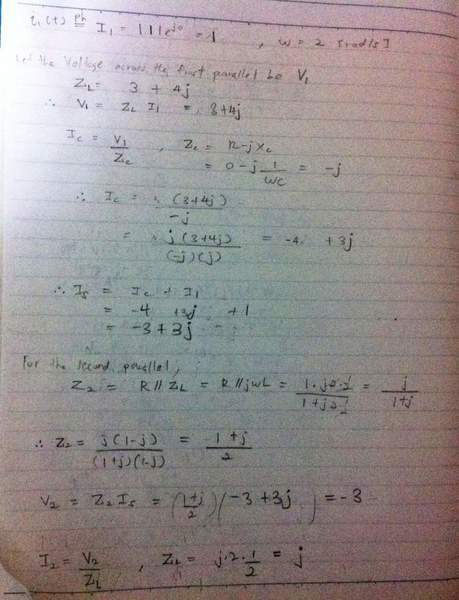 i₁(t) ph= I₁ = |1|e^j0 = 1 , ω = 2 [rad/s]
Let the Voltage across the first parallel be V₁
Z_L = 3 + 4j
∴ V₁ = Z_L I₁ = 3+4j
I_c = V₁/Z_c , Z_c = R-jX_c
= 0-j 1/ωC = -j
∴ I_c = (3+4j)/-j
= j(3+4j)/(-j)(j) = -4 +3j
∴ I_s = I_c + I₁
= -4 +3j +1
= -3+3j
For the second parallel,
Z₂ = R//Z_L = R//jωL = 1·j2·½/1+j2·½ = j/1+j
∴ Z₂ = j(1-j)/(1+j)(1-j) = 1+j/2
V₂ = Z₂I_s = (1+j/2)(-3+3j) = -3
I₂ = V₂/Z_L , Z_L = j·2·1/2 = j